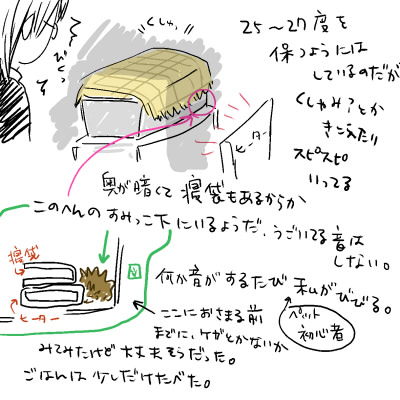 25〜27度を
保つようには
しているのだが
くしゃみ?とか
きこえたり
スピスピ
いってる
くしゃっ
びくっ
ヒーター
奥が暗くて寝袋もあるからか
このへんのすみっこ下にいるようだ、うごいてる音は
しない。
寝袋
ヒーター
何か音がするたび私がびびる。
ペット
初心者
ここにおさまる前
までに、ケガとかないか
みてみたけど大丈夫そうだった。
ごはんは少しだけたべた。